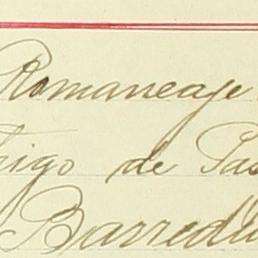 Romaneaje
Trigo de Pas
Barredu